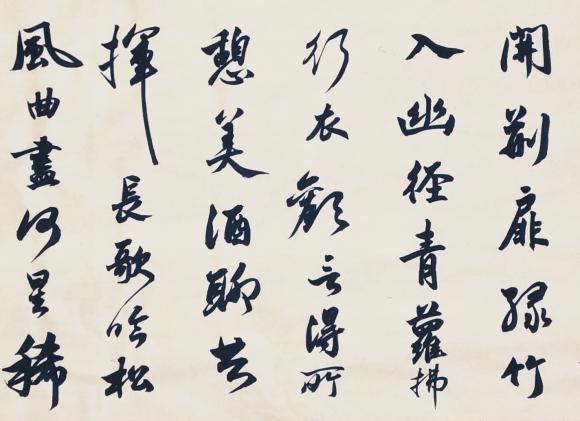 開荆扉綠竹
入幽徑青蘿拂
行衣歡言得所
憩美酒聊共
揮長歌吟松
風曲盡河星稀